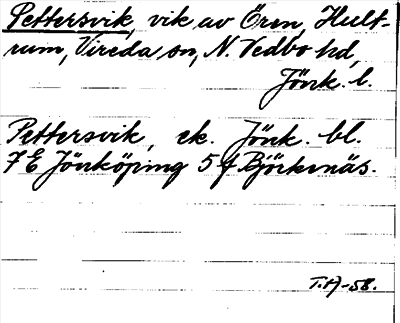 Pettersvik, vik av Ören, Hult-
rum, Vireda sn, N. Vedbo hd,
Jönk. l.
Pettersvik, ek. Jönk. bl.
7E Jönköping 5f Björknäs.
T.A-58.